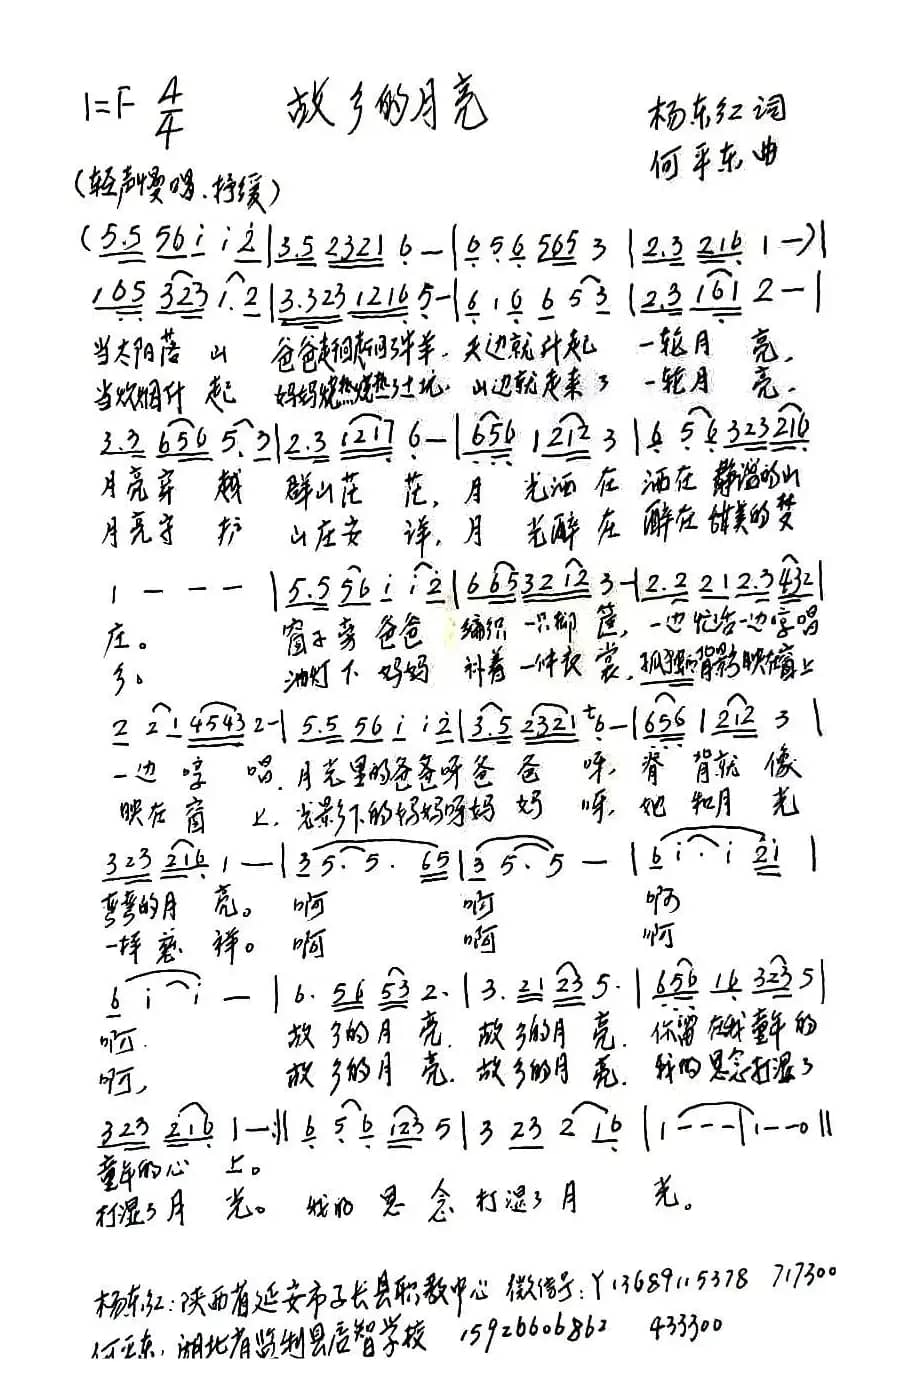 1=F 4/4 故乡的月亮 杨东红 词
何平东 曲
(轻声慢唱、抒缓)
(5.5 56 i i 2 | 3.5 2321 6 — | 6 5 6 565 3 | 2.3 216 1 —) |
165 323 1. 2 | 3.323 1216 5 — | 6 16 6 5 3 | 2.3 161 2 — |
当太阳落 山 爸爸赶回赶回了牛羊. 天边就升起 一轮月 亮,
当炊烟升 起 妈妈烧热烧热了土坑. 山边就走来了 一轮月 亮.
3.3 656 5. 3 | 2.3 1217 6 — | 656 1 212 3 | 6 5 6 323 216
月亮穿 越 群山茫 茫, 月 光洒 在 洒在 静谧的山
月亮守 护 山庄安 详, 月 光醉 在 醉在 甜美的梦
1 — — — | 5.5 56 i i 2 | 6 65 32 12 3 — | 2.2 21 2.3 432 |
庄。 窗子旁 爸爸 编织 一只柳 筐, 一边忙活一边哼唱
乡。 油灯下 妈妈 补着 一件衣 裳, 孤独的背影映在窗上
2 2 1 4543 2 — | 5.5 56 i i 2 | 3.5 2321 6 — | 656 1 212 3 |
一边 哼 唱. 月光里的爸爸呀爸 爸 呀, 脊 背就 像
映在窗 上, 光影下的妈妈呀妈 妈 呀, 她 和月 光
323 216 1 — | 3 5. 5. 65 | 3 5. 5 — | 6 i. i 2i |
弯弯的月 亮。 啊 啊 啊
一样慈 祥。 啊 啊 啊
6 i i i — | 6. 56 53 2. | 3. 21 23 5. | 656 16 323 5 |
啊. 故乡的月 亮. 故乡的月 亮. 你留在我童年的
啊, 故乡的月 亮. 故乡的月 亮. 我的思念打湿了
323 216 1 — :|| 6 5 6 123 5 | 3 23 2 16 | 1 — — — | 1 — — 0 ||
童年的心 上。
打湿了月 光。 我的 思 念 打湿了月 光。
杨东红:陕西省延安市子长县职教中心 微信号:Y13689115378 717300
何平东:湖北省监利县启智学校 15926606862 433300